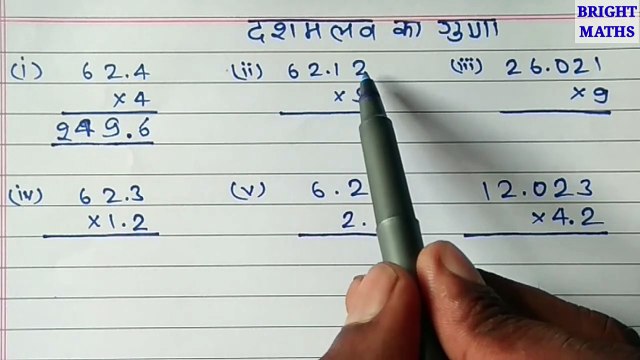 BRIGHT
MATHS
दशमलव का गुणा
(i) 62.4 (ii) 62.12 (iii) 26.021
×4 × ×9
249.6
(iv) 62.3 (v) 6.2 12.023
×1.2 2. ×4.2